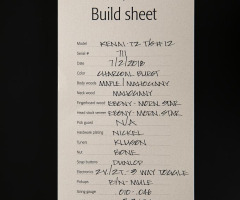 Build sheet
Model KENAI TZ T/S# 12
Serial # 711
Date 7/2/2018
Color CHARCOAL BURST
Body woods MAPLE / MAHOGANY
Neck wood MAHOGANY
Fingerboard wood EBONY - MORN. STAR
Head stock veneer EBONY - MORN. STAR
Pick guard N/A
Hardware plating NICKEL
Tuners KLUSON
Nut BONE
Strap buttons DUNLOP
Electronics 2V/2T - 3 WAY TOGGLE
Pickups B/N - MULE
String gauge .010 - .046